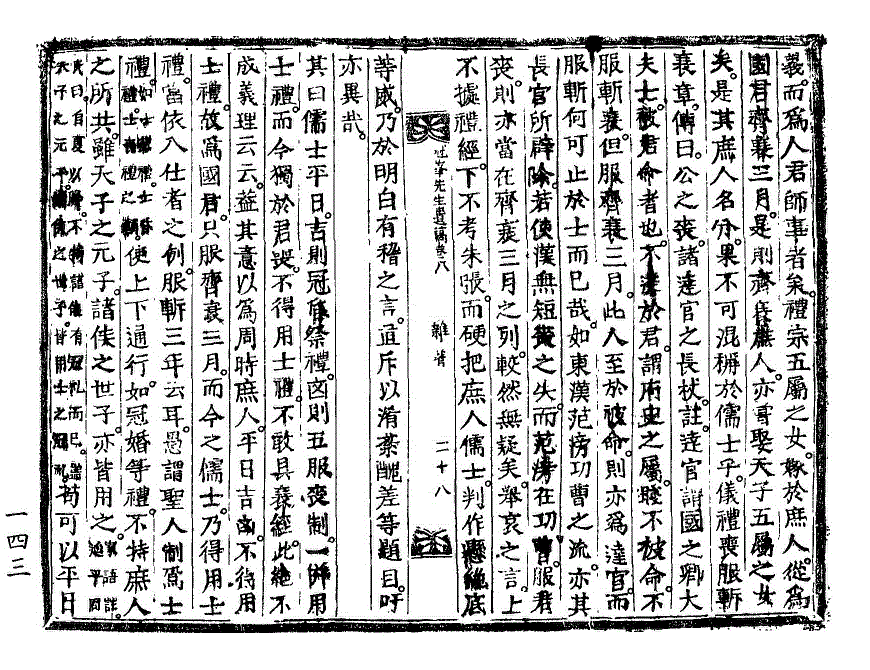 義而爲人君師事者矣禮宗五屬之女嫁於庶人從爲
國君齊衰三月是則齊民庶人亦嘗娶天子五屬之女
矣是其庶人名分果不可混稱於儒士乎儀禮喪服斬
衰章傳曰公之喪諸達官之長杖註達官謂國之卿大
夫士被君命者也不達於君謂府史之屬賤不被命不
服斬衰但服齊衰三月此人至於被命則亦爲達官而
服斬何可止於士而已哉如東漢范滂功曹之流亦其
長官所辟除若使漢無短喪之失而范滂在功曹服君
喪則亦當在齊衰三月之列較然無疑矣擧哀之言上
不據禮經下不考朱張而硬把庶人儒士判作懸絶底
先生遺稿卷八 雜著 二十八
等威乃於明白有稽之言直斥以淆紊醜差等題目吁
亦異哉
其曰儒士平日吉則冠昏祭禮凶則五服喪制一倂用
士禮而今獨於君喪不得用士禮不敢具衰絰此絶不
成義理云云蓋其意以爲周時庶人平日吉凶不得用
士禮故爲國君只服齊衰三月而今之儒士乃得用士
禮當依入仕者之例服斬三年云耳愚謂聖人制爲士
禮如士冠禮士昏禮士喪禮之類便上下通行如冠婚等禮不特庶人
之所共雖天子之元子諸侯之世子亦皆用之家語註
氏曰自夏以降諸侯有冠禮而已天子之元子諸侯之世子皆用士之冠禮苟可以平日
一四三